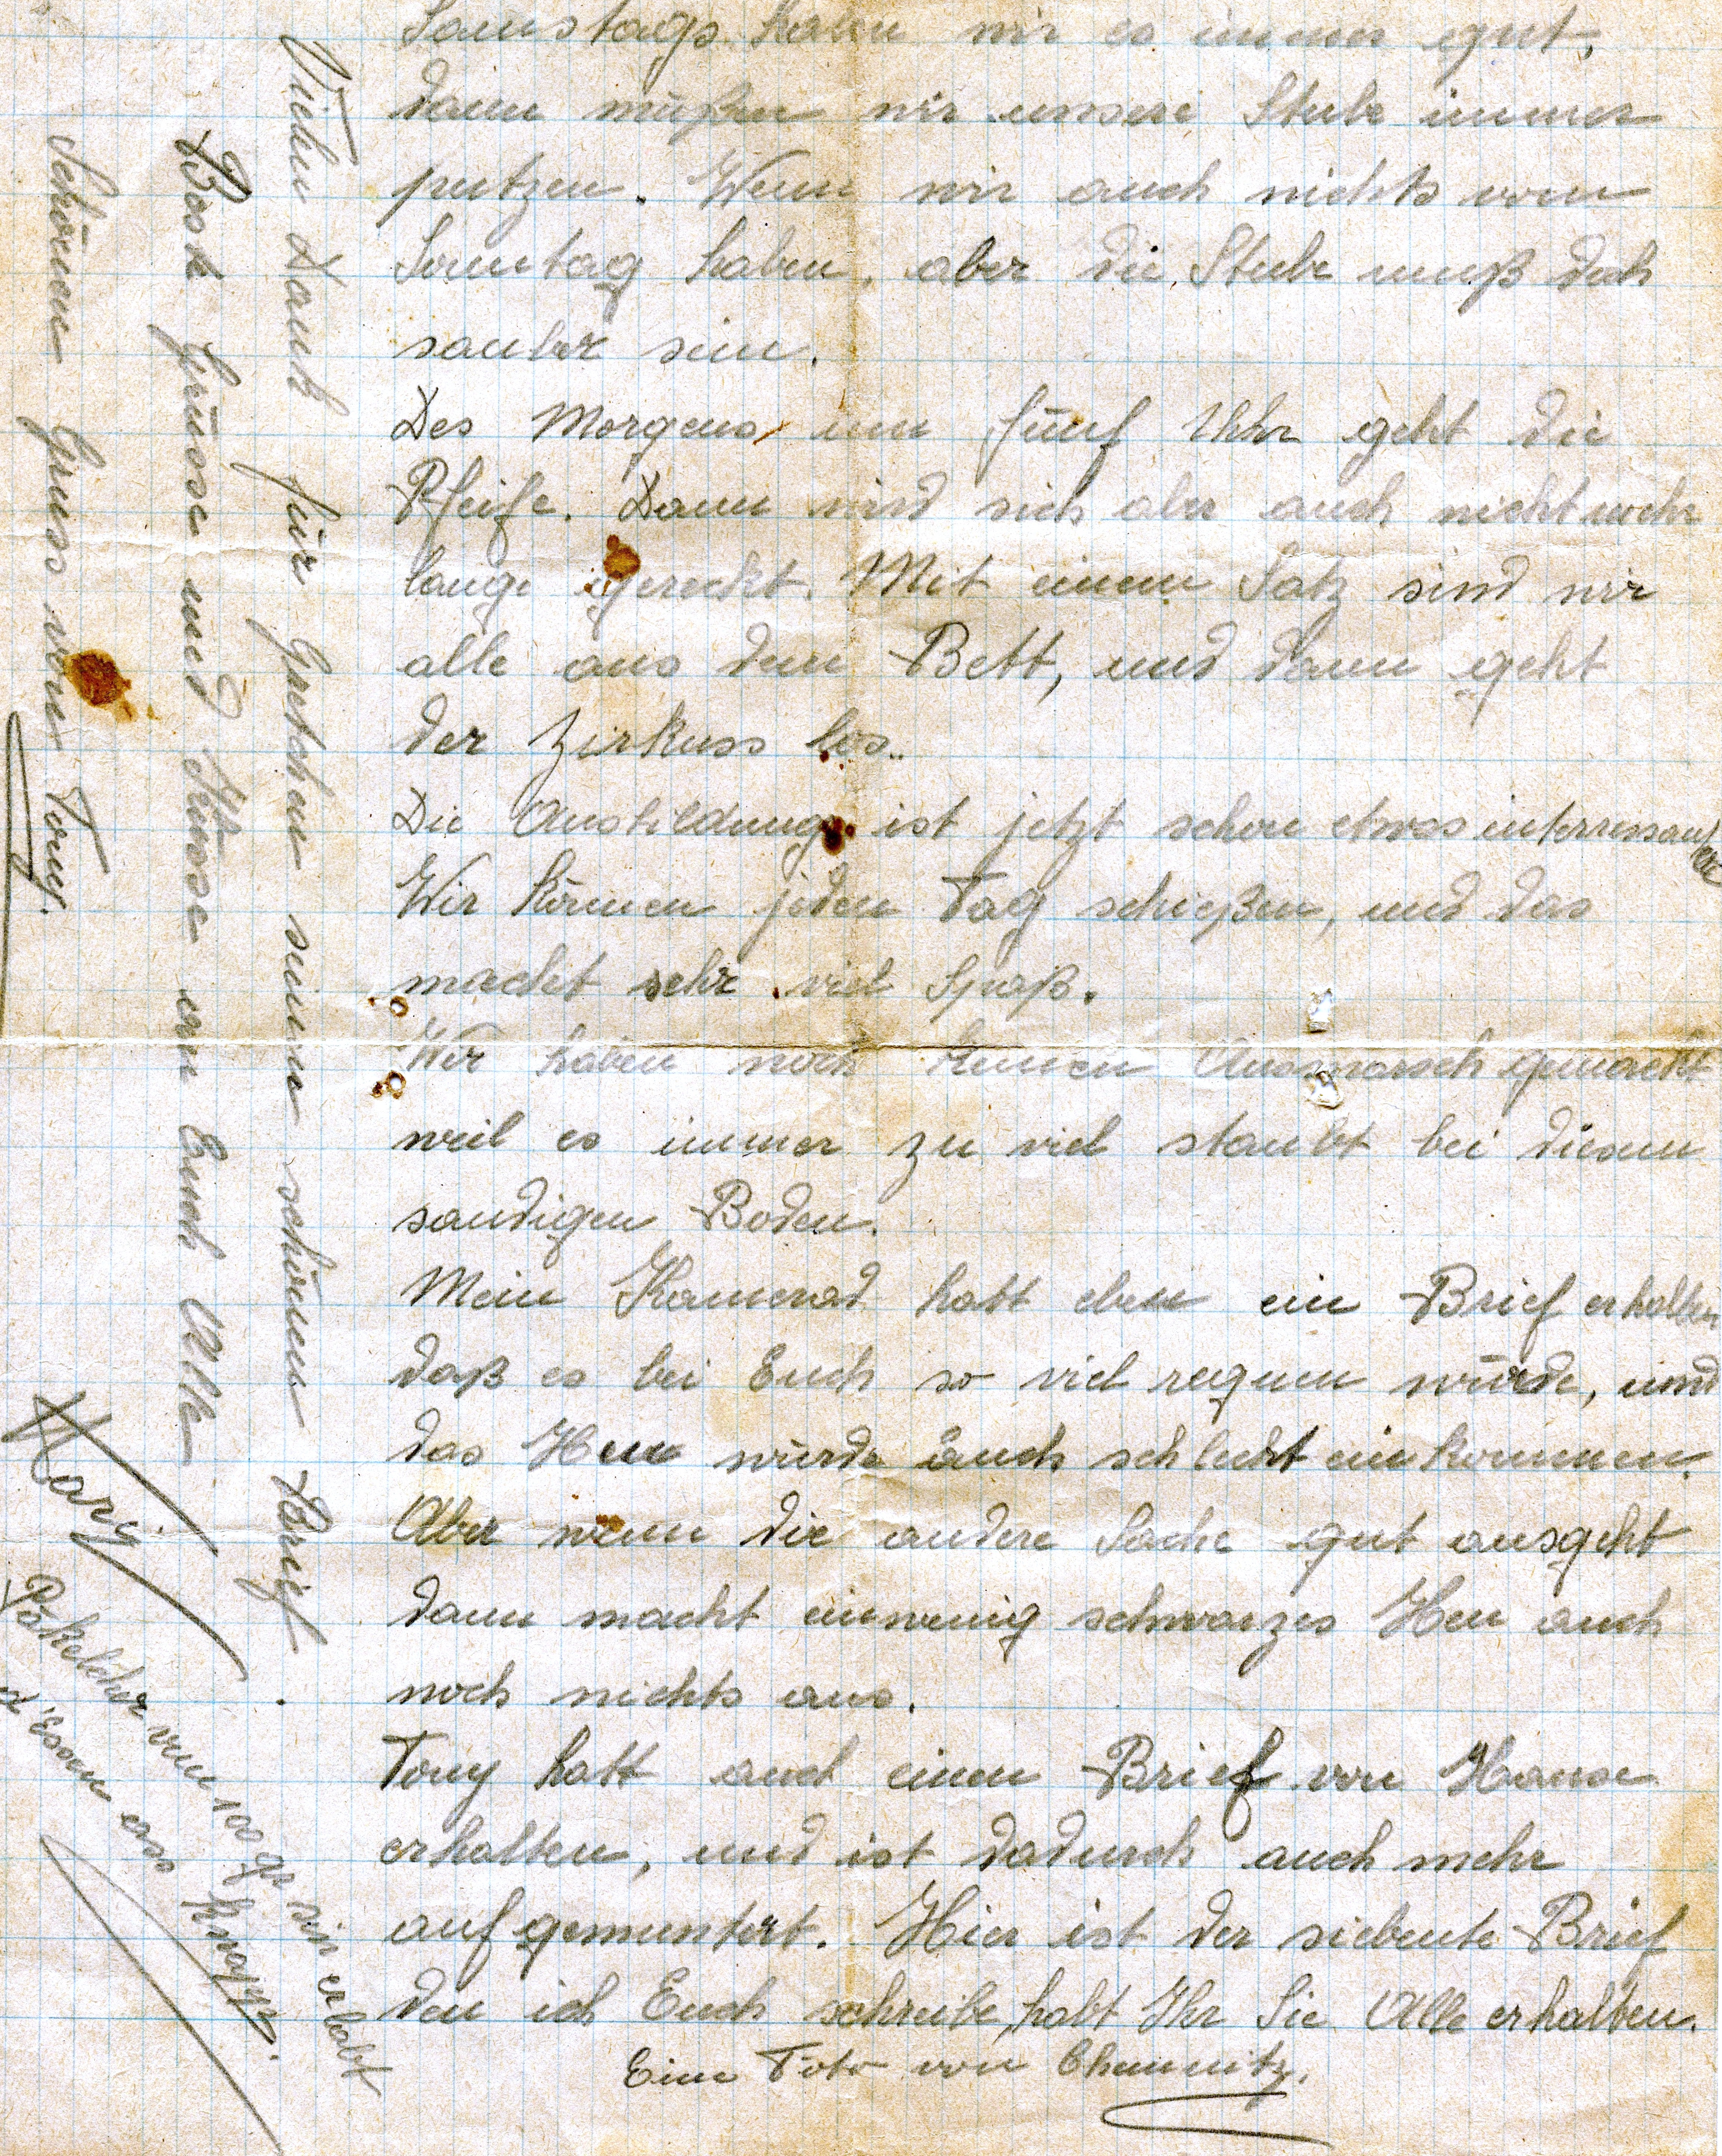 Samstags haben wir es immer gut,
dann müßen wir unsere Stube immer
putzen. Wenn wir auch nichts vom
Sonntag haben, aber die Stube muß doch
sauber sein.
Des Morgens um fünf Uhr geht die
Pfeife. Dann wird sich aber auch nicht mehr
lange gereckt. Mit einem Satz sind wir
alle aus dem Bett, und dann geht
der Zirkuss los..
Die Ausbildung ist jetzt schon etwas interressanter
Wir können jeden Tag schießen, und das
macht sehr viel Spaß.
Wir haben noch keinen Ausmarsch gemacht
weil es immer zu viel staubt bei diesem
sandigen Boden.
Mein Kamerad hatt eben ein Brief erhalten
daß es bei Euch so viel regnen würde, und
das Heu würde auch schlecht einkommen.
Aber wenn die andere Sache gut ausgeht
dann macht einwenig schwarzes Heu auch
noch nichts aus.
Tony hatt auch einen Brief von Hause
erhalten, und ist dadurch auch mehr
aufgemuntert. Hier ist der siebente Brief
den ich Euch schreibe, habt Ihr Sie Alle erhalten.
Eim Foto von Chemnitz.
Vielen Dank für Gretchen seinen schönen Brief.
Beste Grüsse und Küsse an Euch Alle
Schönen Gruss von Tony.
Päkelcher vun 100 gr sin erlabt
d'Essen ass knapp.